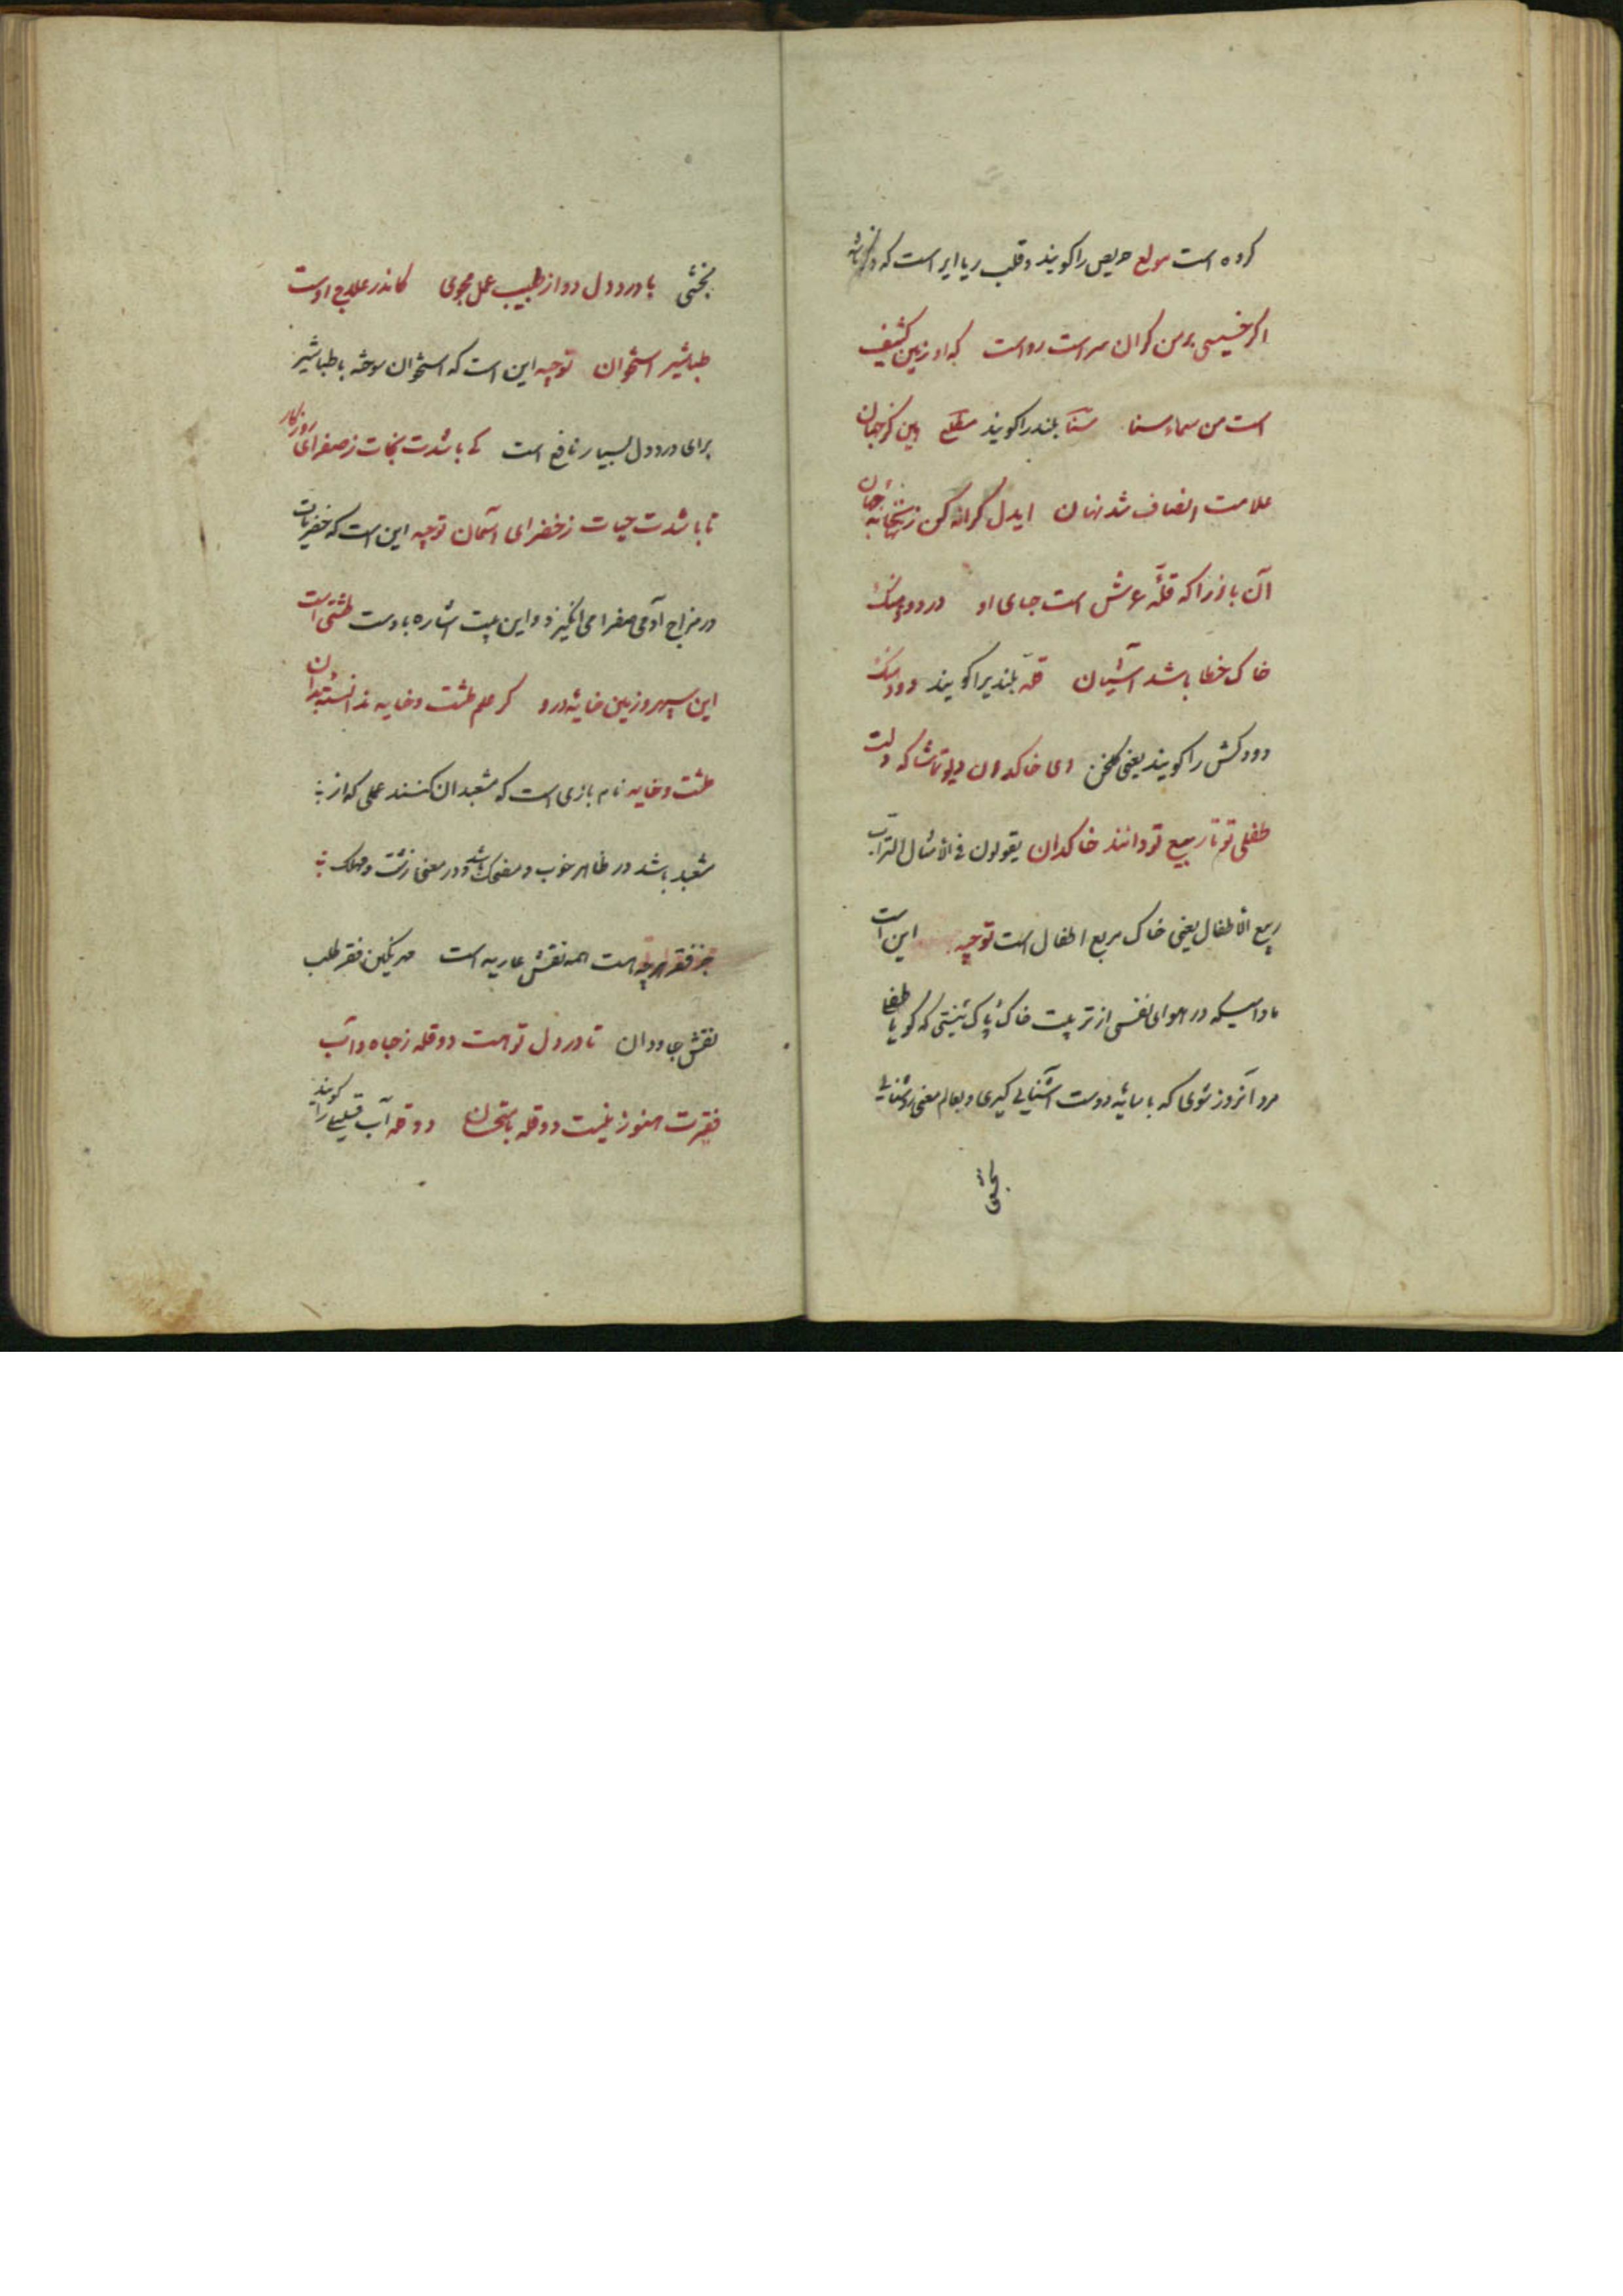 کرده است مولع حریص را کویند و قلب ریا ابر است که
اکر خسیسی بر من کران سراست رواست که او زمین کثیف
است من سماء سنا سَنَا بلند را کویند مطلع بین کز جهان
علامت انصاف شد نهان ایدل کرانه کن ز میان
آن باز را که قلّه عرش است جای او در دود
خاک خطا باشد آشیان قلّه بلندیرا کویند
دودکش را کویند یعنی کلخن ای خاکدان دیو تماشاکه دلت
طفلی تو تا ربیع تو دانند خاکدان یقولون فی الأمثال التراب
ربیع الأطفال یعنی خاک ربیع اطفال است توجیه این است
مادامیکه در هوای نفسی از تربیت خاک پاک نیستی که کویا طفلی
مرد آنروز شوی که با سایهٔ دوست آشنایی کیری و بعالم معنی روشنایی
بخشی
بخشی با درد دل دوا ز طبیب عمل مجوی کاندر علاج اوست
طباشیر استخوان توجیه این است که استخوان سوخته با طباشیر
برای درد دل بسیار نافع است کی باشدت نجات ز صفرای روزکار
تا باشدت حیات ز خضرای آسمان توجیه این است که خضریات
در مزاج آدمی صفرا می انکیزد و این بیت اشاره باوست طشتی است
این سپهر و زمین خایهٔ درو کر علم طشت و خایه ندانستهٔ بدان
طشت و خایه نام بازی است که مشعبدان کنند عملی که از
مشعبد باشد در ظاهر خوب و مضحک باشد و در معنی زشت و مهلک
جز فقر هرچه هست همه نقش عاریه است مهر نکین فقر طلب
نقش جاودان تا در دل تو هست دو قله ز جاه و آب
فقرت هنوز نیست دو قله بامتحان دو قله آب قلیل را کویند